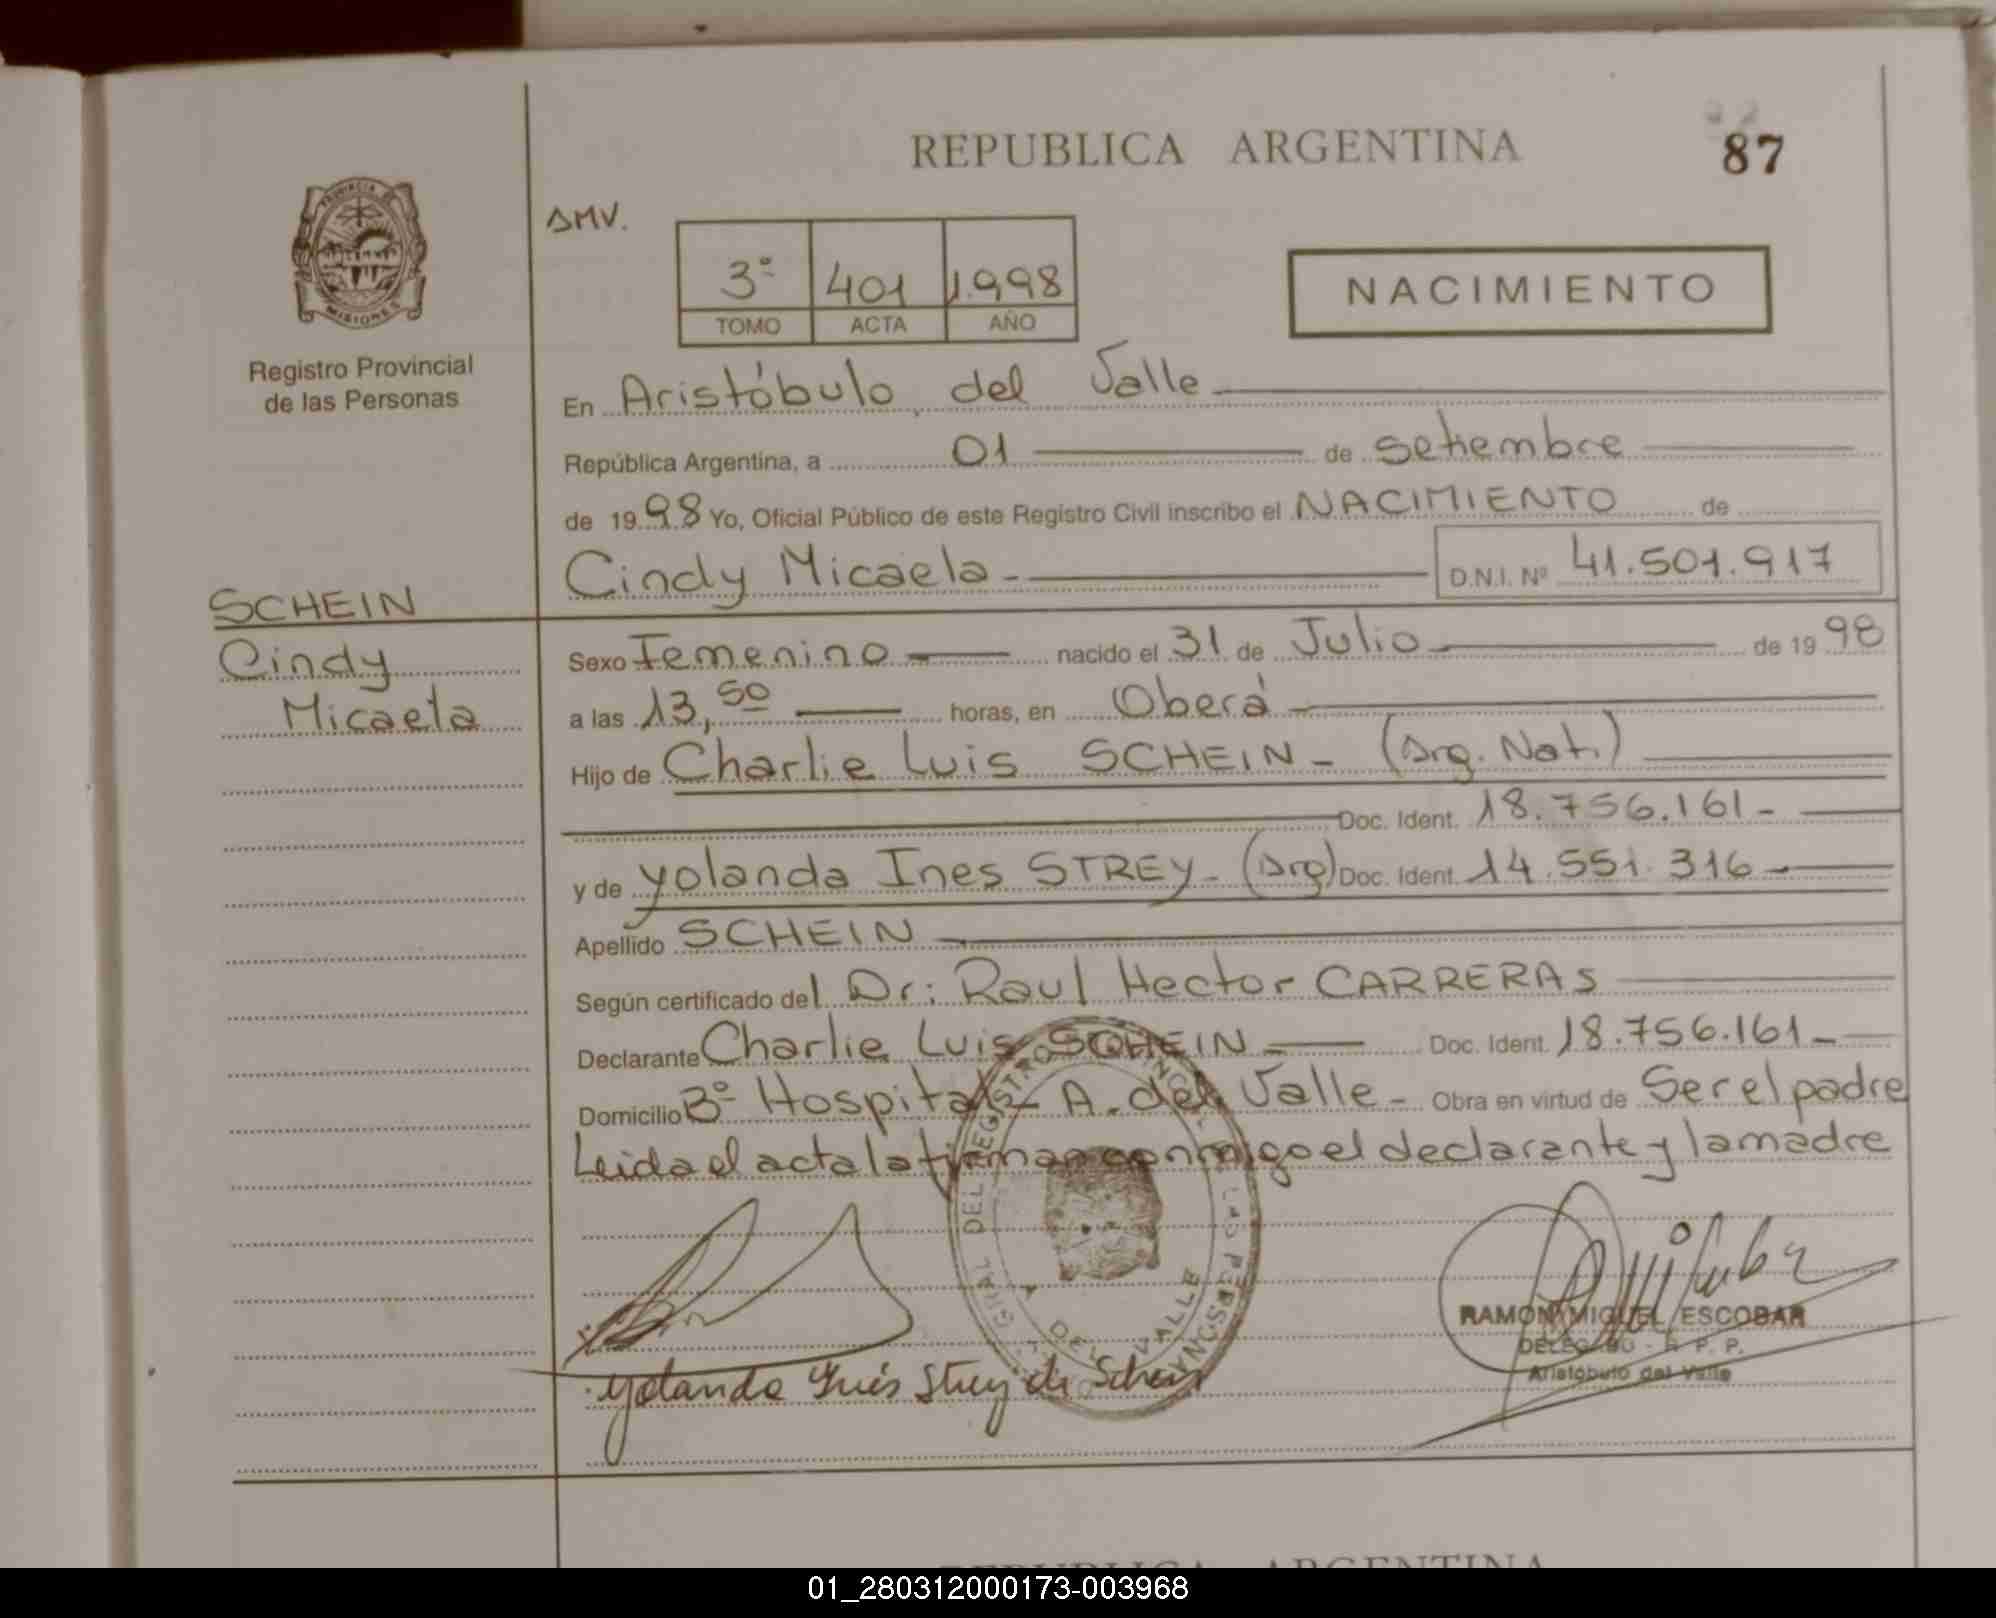 REPUBLICA ARGENTINA
87
PROVINCIA DE
MISIONES
Registro Provincial
de las Personas
3º 401 1.998
TOMO ACTA AÑO
NACIMIENTO
En Aristóbulo del Valle
República Argentina, a 01 de setiembre
de 1998 Yo, Oficial Público de este Registro Civil inscribo el NACIMIENTO de
Cindy Micaela - D.N.I. Nº 41.501.917
SCHEIN
Cindy
Micaela
Sexo Femenino nacido el 31 de Julio de 1998
a las 13,50 horas, en Oberá
Hijo de Charlie Luis SCHEIN - (Arg. Nat.)
Doc. Ident. 18.756.161 -
y de Yolanda Ines STREY - (Arg) Doc. Ident. 14.551.316 -
Apellido SCHEIN
Según certificado del Dr: Raul Hector CARRERAS
Declarante Charlie Luis SCHEIN Doc. Ident. 18.756.161 -
Domicilio Bº Hospital - A. del Valle - Obra en virtud de Ser el padre
Leida el acta la firman conmigo el declarante y la madre
Yolanda Inés Strey de Schein
RAMON MIGUEL ESCOBAR
DELEGADO - R. P. P.
Aristóbulo del Valle
REPUBLICA ARGENTINA
01_280312000173-003968